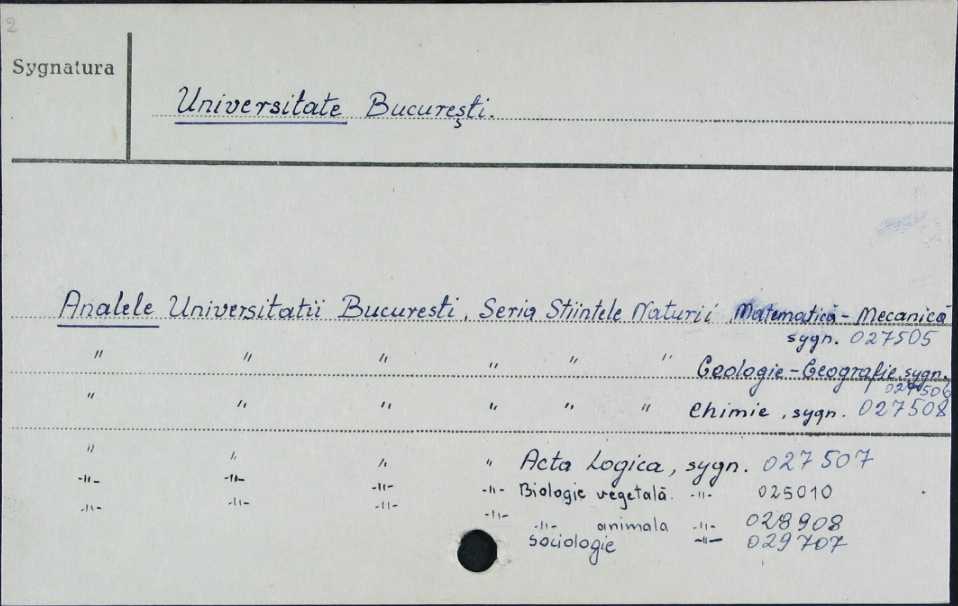 2
Sygnatura
Universitate Bucureşti.
Analele Universitatii Bucuresti, Seria Stiintele Naturii, Matematică - Mecanică
sygn. 027505
" " " " " " Geologie - Geografie, sygn.
027506
" " " " " " Chimie, sygn. 027508
" " " " Acta Logica, sygn. 027507
-"- -"- -"- -"- Biologie vegetală. -"- 025010
-"- -"- -"- -"- -"- animala -"- 028908
Sociologie -"- 029707